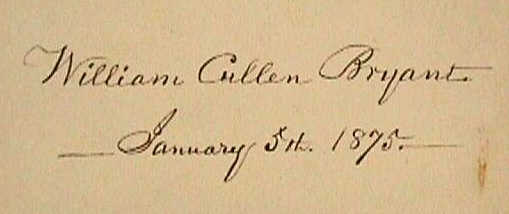 William Cullen Bryant.
— January 5th. 1875. —